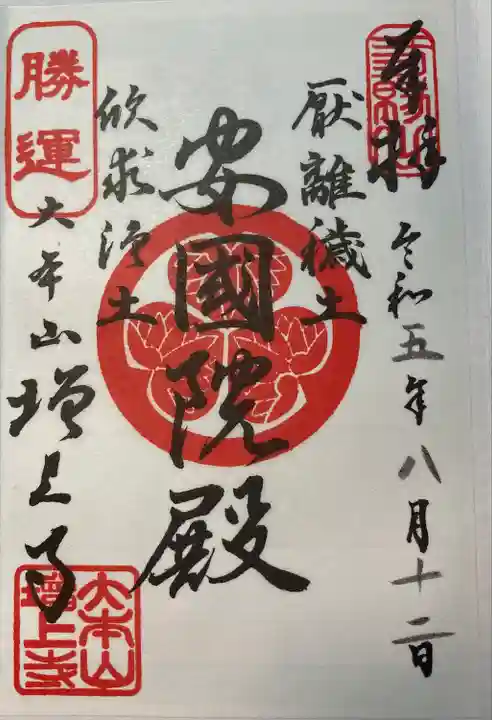 奉拝
令和五年八月十二日
厭離穢土
安國院殿
欣求浄土
勝運
大本山増上寺
大本山
増上寺